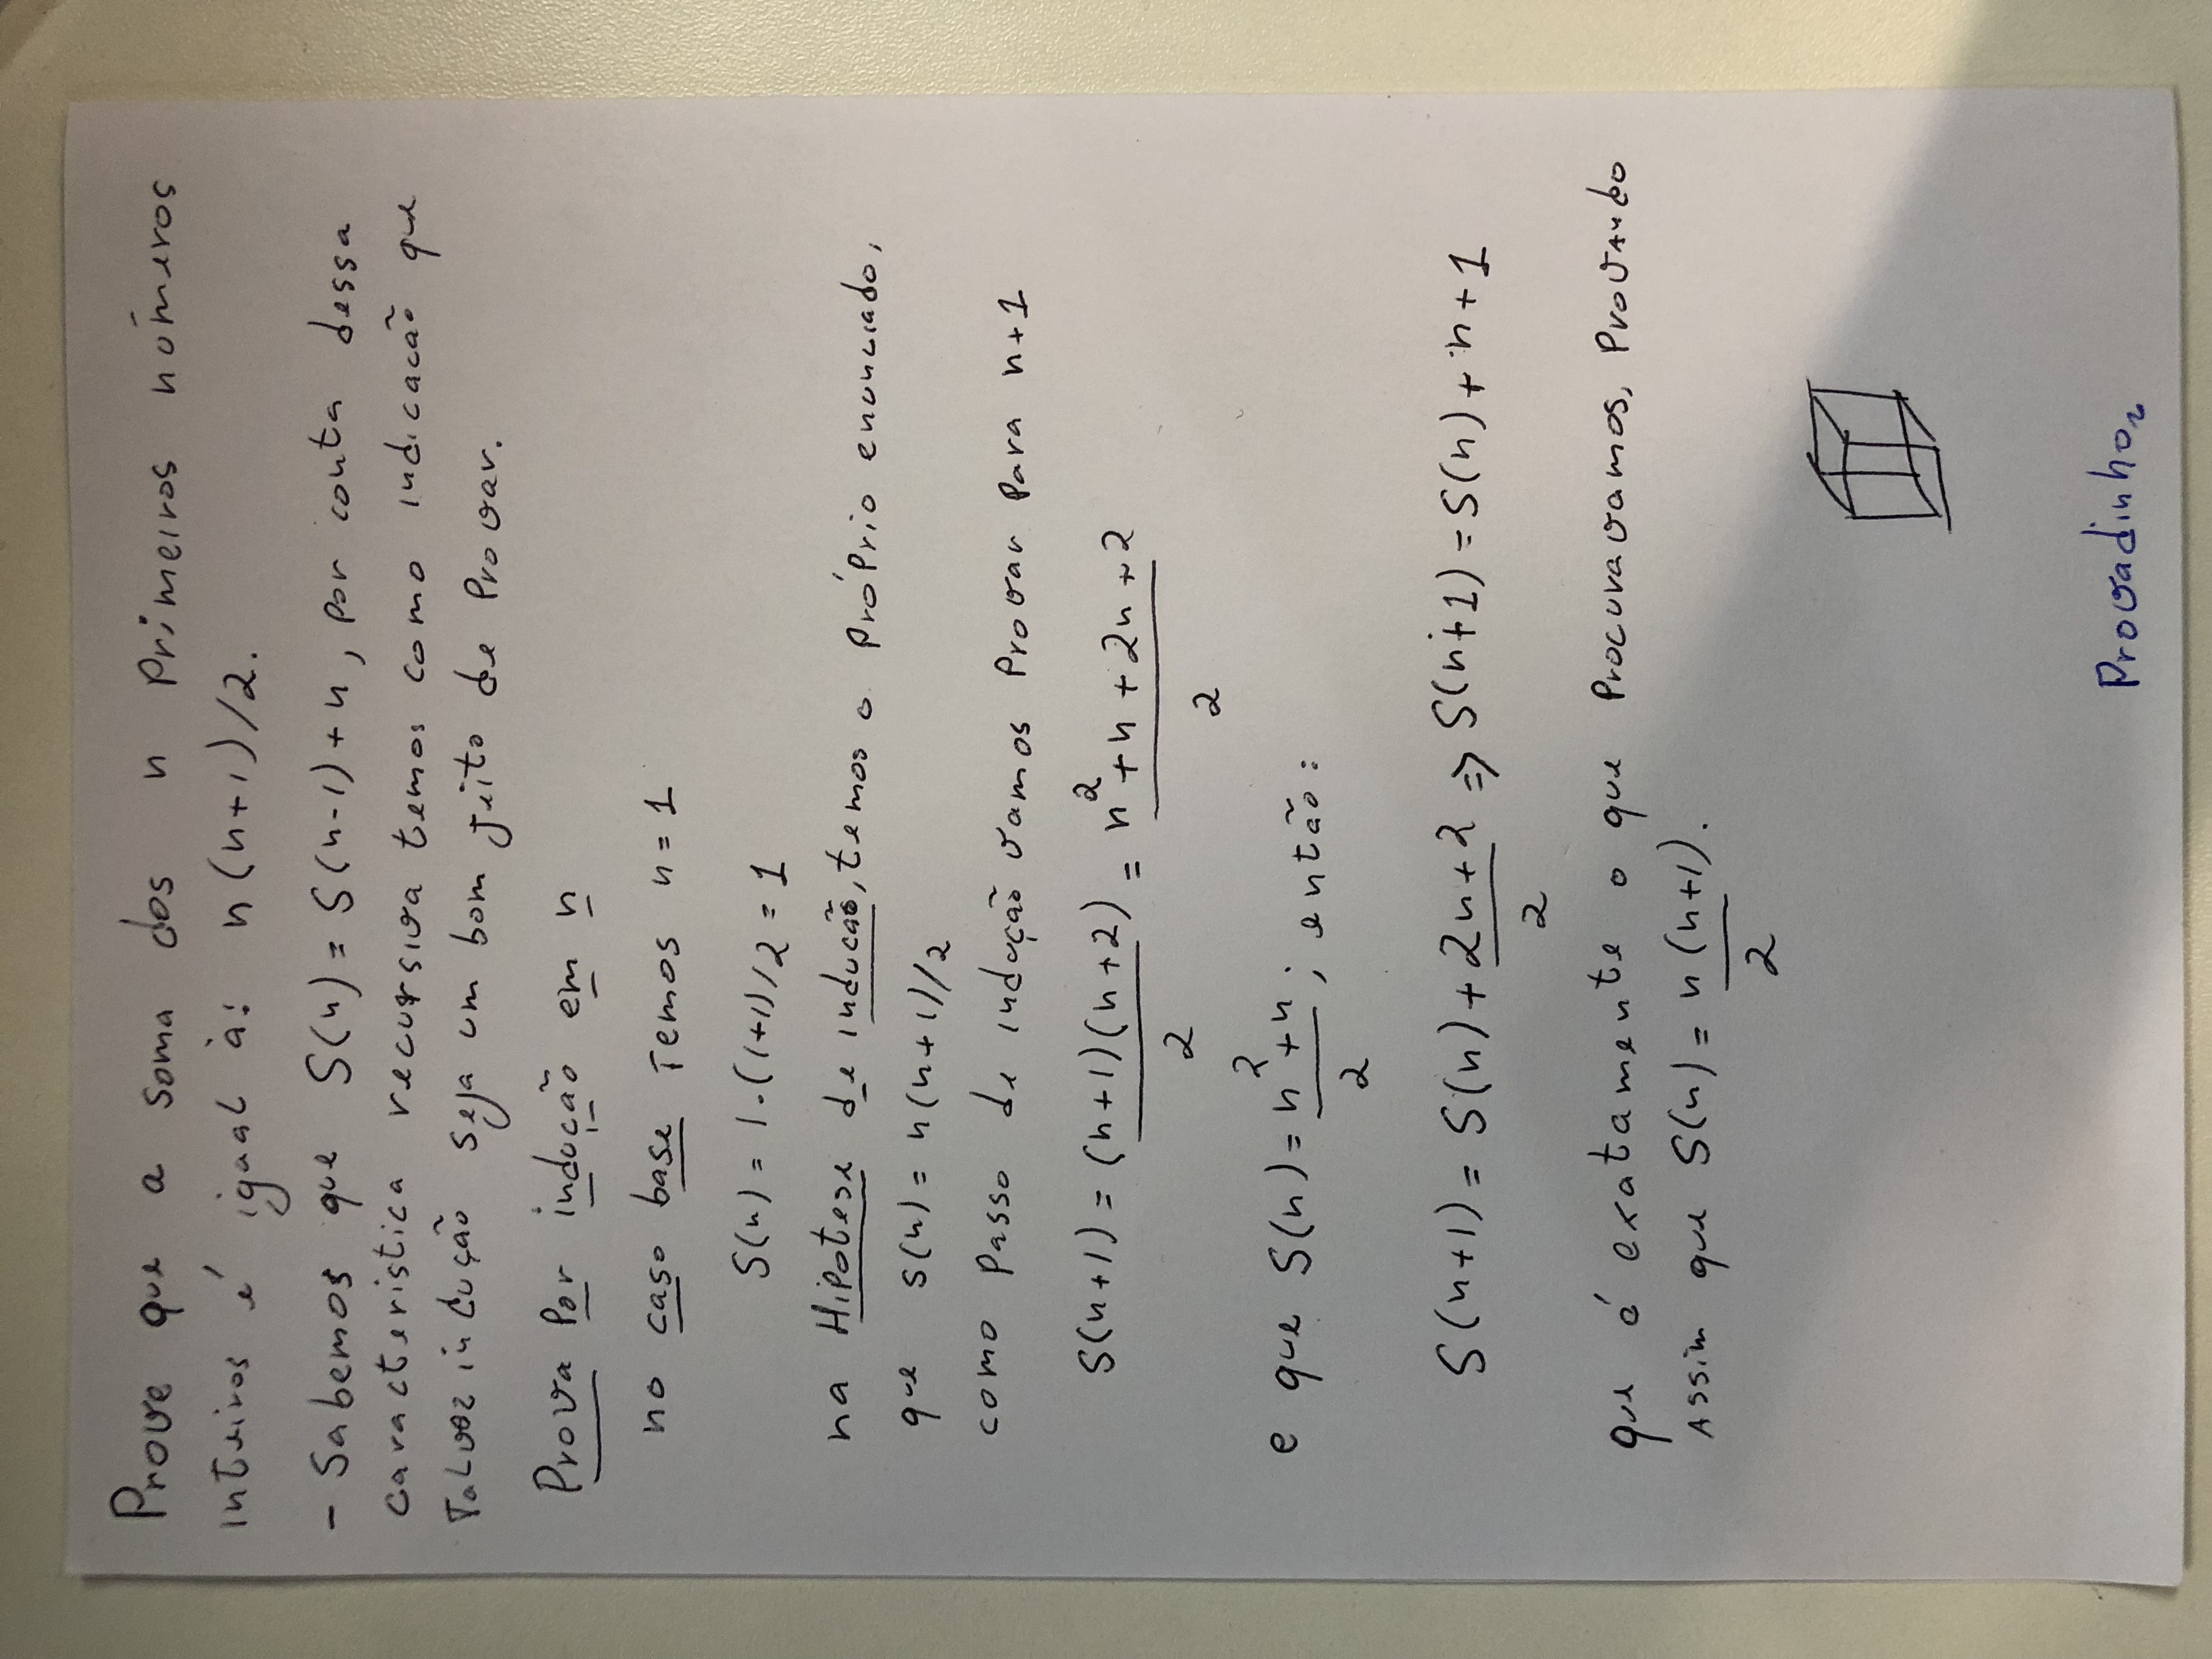 Prove que a soma dos n primeiros números
inteiros é igual à: n(n+1)/2.
- Sabemos que S(n) = S(n-1) + n, por conta dessa
caracteristica recursiva temos como indicacão que
Talvez indução seja um bom jeito de Provar.
Prova Por indução em n
no caso base Temos n = 1
S(n) = 1.(1+1)/2 = 1
na Hipotese de inducão, temos o próprio enunciado,
que S(n) = n(n+1)/2
como passo de indução vamos provar para n+1
S(n+1) = (n+1)(n+2)/2 = n²+n+2n+2/2
e que S(n) = n²+n/2; então:
S(n+1) = S(n) + 2n+2/2 => S(n+1) = S(n) + n + 1
que é exatamente o que procuravamos, provando
Assim que S(n) = n(n+1)/2.
Provadinho